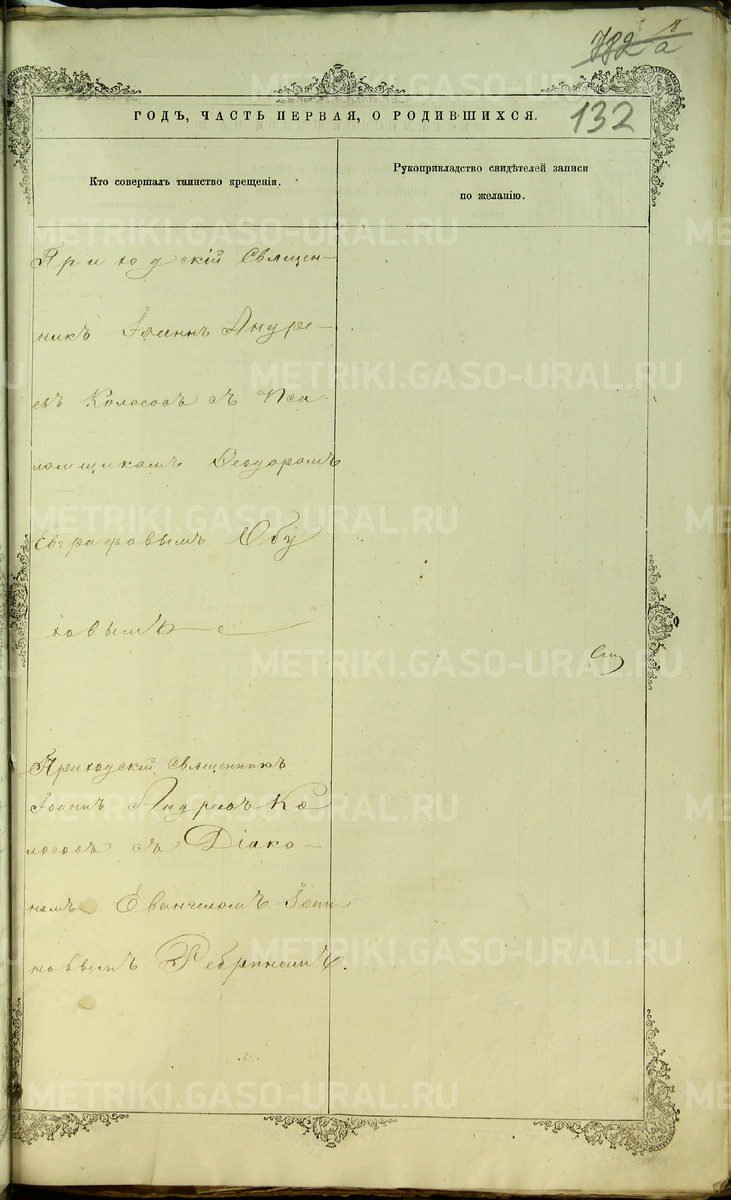 8
782 а
132
ГОДЪ, ЧАСТЬ ПЕРВАЯ, О РОДИВШИХСЯ.
Кто совершалъ таинство крещенія.
Рукоприкладство свидѣтелей записи
по желанію.
Приходскій Священ-
никъ Іоаннъ Андре-
евъ Колосовъ съ Пса-
ломщикомъ Ѳеодоромъ
Евграфовымъ Обу
ховымъ
Приходскій Священникъ
Іоаннъ Андреевъ Ко
лосовъ съ Діако-
номъ Евангеломъ Іоан
новымъ Ребринымъ.
METRIKI.GASO-URAL.RU